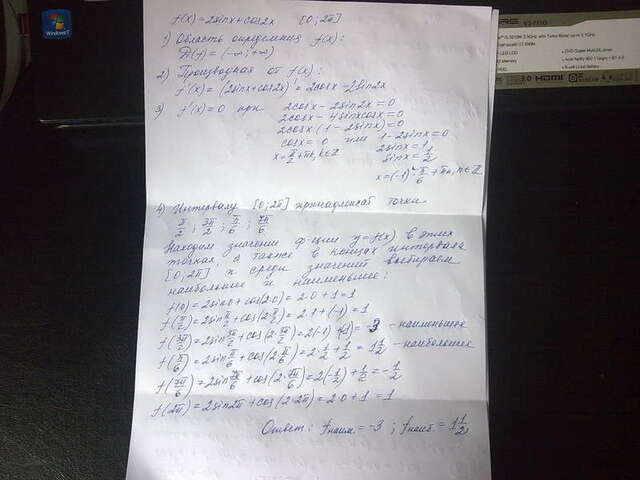 f(x)=2sinx+cos2x [0;2π]
1) Область определения f(x):
D(f)=(-∞;+∞)
2) Производная от f(x):
f'(x)=(2sinx+cos2x)'=2cosx-2sin2x
3) f'(x)=0 при 2cosx-2sin2x=0
2cosx-4sinxcosx=0
2cosx(1-2sinx)=0
cosx=0 или 1-2sinx=0
x=π/2+πn,n∈Z 2sinx=1
sinx=1/2
x=(-1)ⁿ·π/6+πn,n∈Z
4) Интервалу [0;2π] принадлежат точки
π/2; 3π/2; π/6; 7π/6
Находим значения ф-ции y=f(x) в этих
точках, а также в концах интервала
[0;2π] и среди значений выбираем
наибольшее и наименьшее:
f(0)=2sin0+cos(2·0)=2·0+1=1
f(π/2)=2sinπ/2+cos(2·π/2)=2·1+(-1)=1
f(3π/2)=2sin3π/2+cos(2·3π/2)=2(-1)+(-1)=-3 -наименьшее
f(π/6)=2sinπ/6+cos(2·π/6)=2·1/2+1/2=1 1/2 -наибольшее
f(7π/6)=2sin7π/6+cos(2·7π/6)=2(-1/2)+1/2=-1/2
f(2π)=2sin2π+cos(2·2π)=2·0+1=1
Ответ: fнаим.=-3; fнаиб.=1 1/2
Windows 7
HDMI